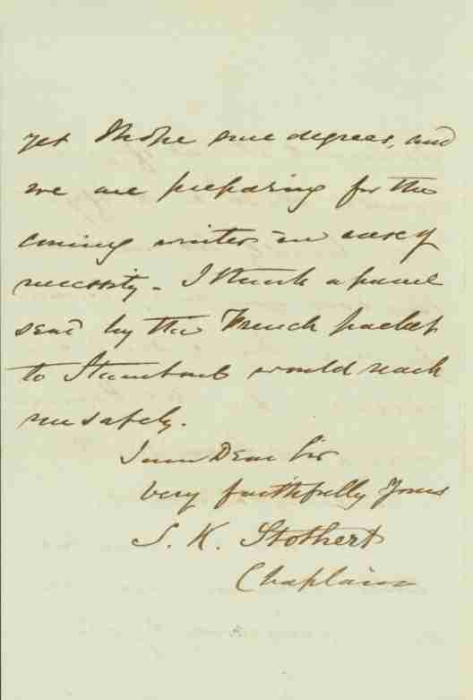 yet and
we are preparing for the
coming winter in case of
necessity - I think a parcel
send by the French packet
to Stamboul would reach
me safely.
I am Dear Sir
Very faithfully Yours
S. K. Stothert
Chaplain